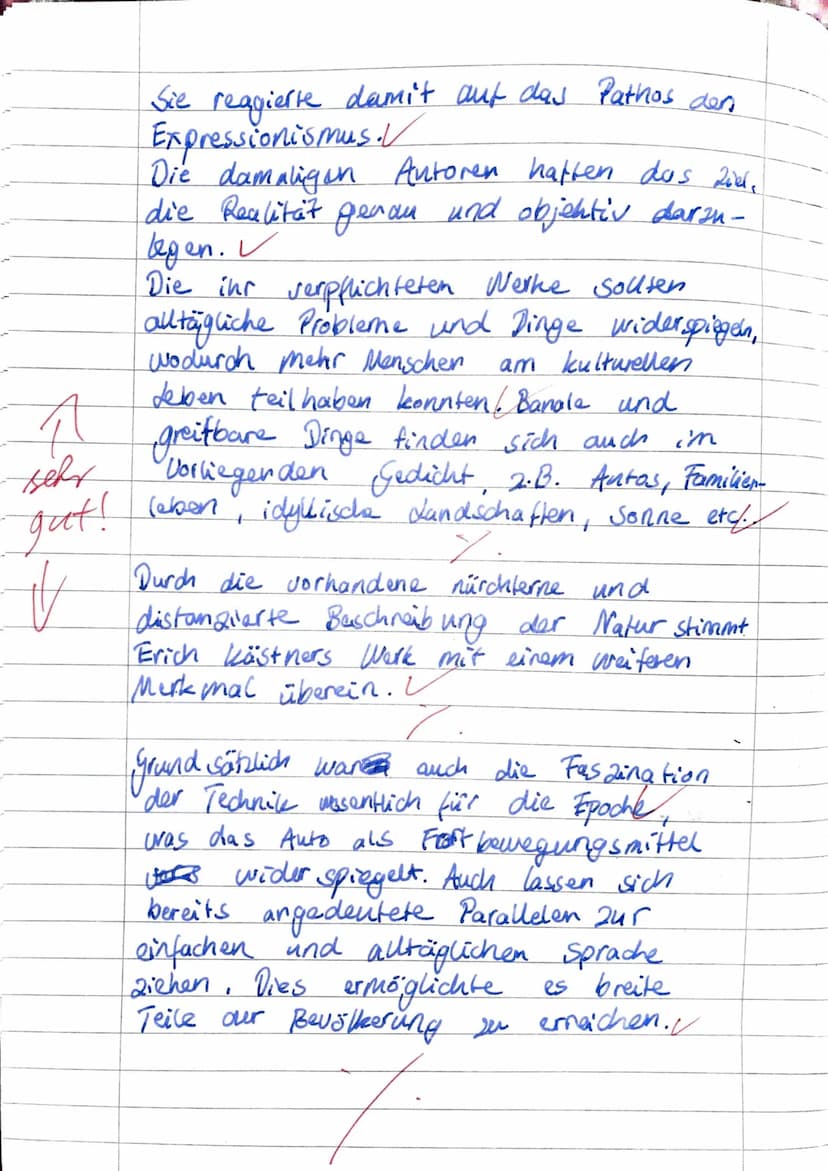 Sie reagierte damit auf das Pathos des
Expressionismus.
Die damaligen Autoren hatten das Ziel,
die Realität genau und objektiv darzu-
legen.
Die ihr verpflichteten Werke sollten
alltägliche Probleme und Dinge widerspiegeln,
wodurch mehr Menschen am kulturellen
Leben teilhaben konnten. Banale und
greifbare Dinge finden sich auch im
vorliegenden Gedicht, z.B. Autos, Familien-
leben, idyllische Landschaften, Sonne etc.
sehr
gut!
Durch die vorhandene nürchterne und
distanzierte Beschreibung der Natur stimmt
Erich Kästners Werk mit einem weiteren
Merkmal überein.
Grundsätzlich war auch die Faszination
der Technik wesentlich für die Epoche,
was das Auto als Fortbewegungsmittel
widerspiegelt. Auch lassen sich
bereits angedeutete Parallelen zur
einfachen und alltäglichen Sprache
ziehen. Dies ermöglichte es breite
Teile der Bevölkerung zu erreichen.